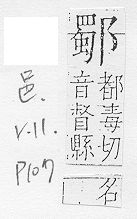 都毒切
音督縣
名
邑.
V.11.
P107